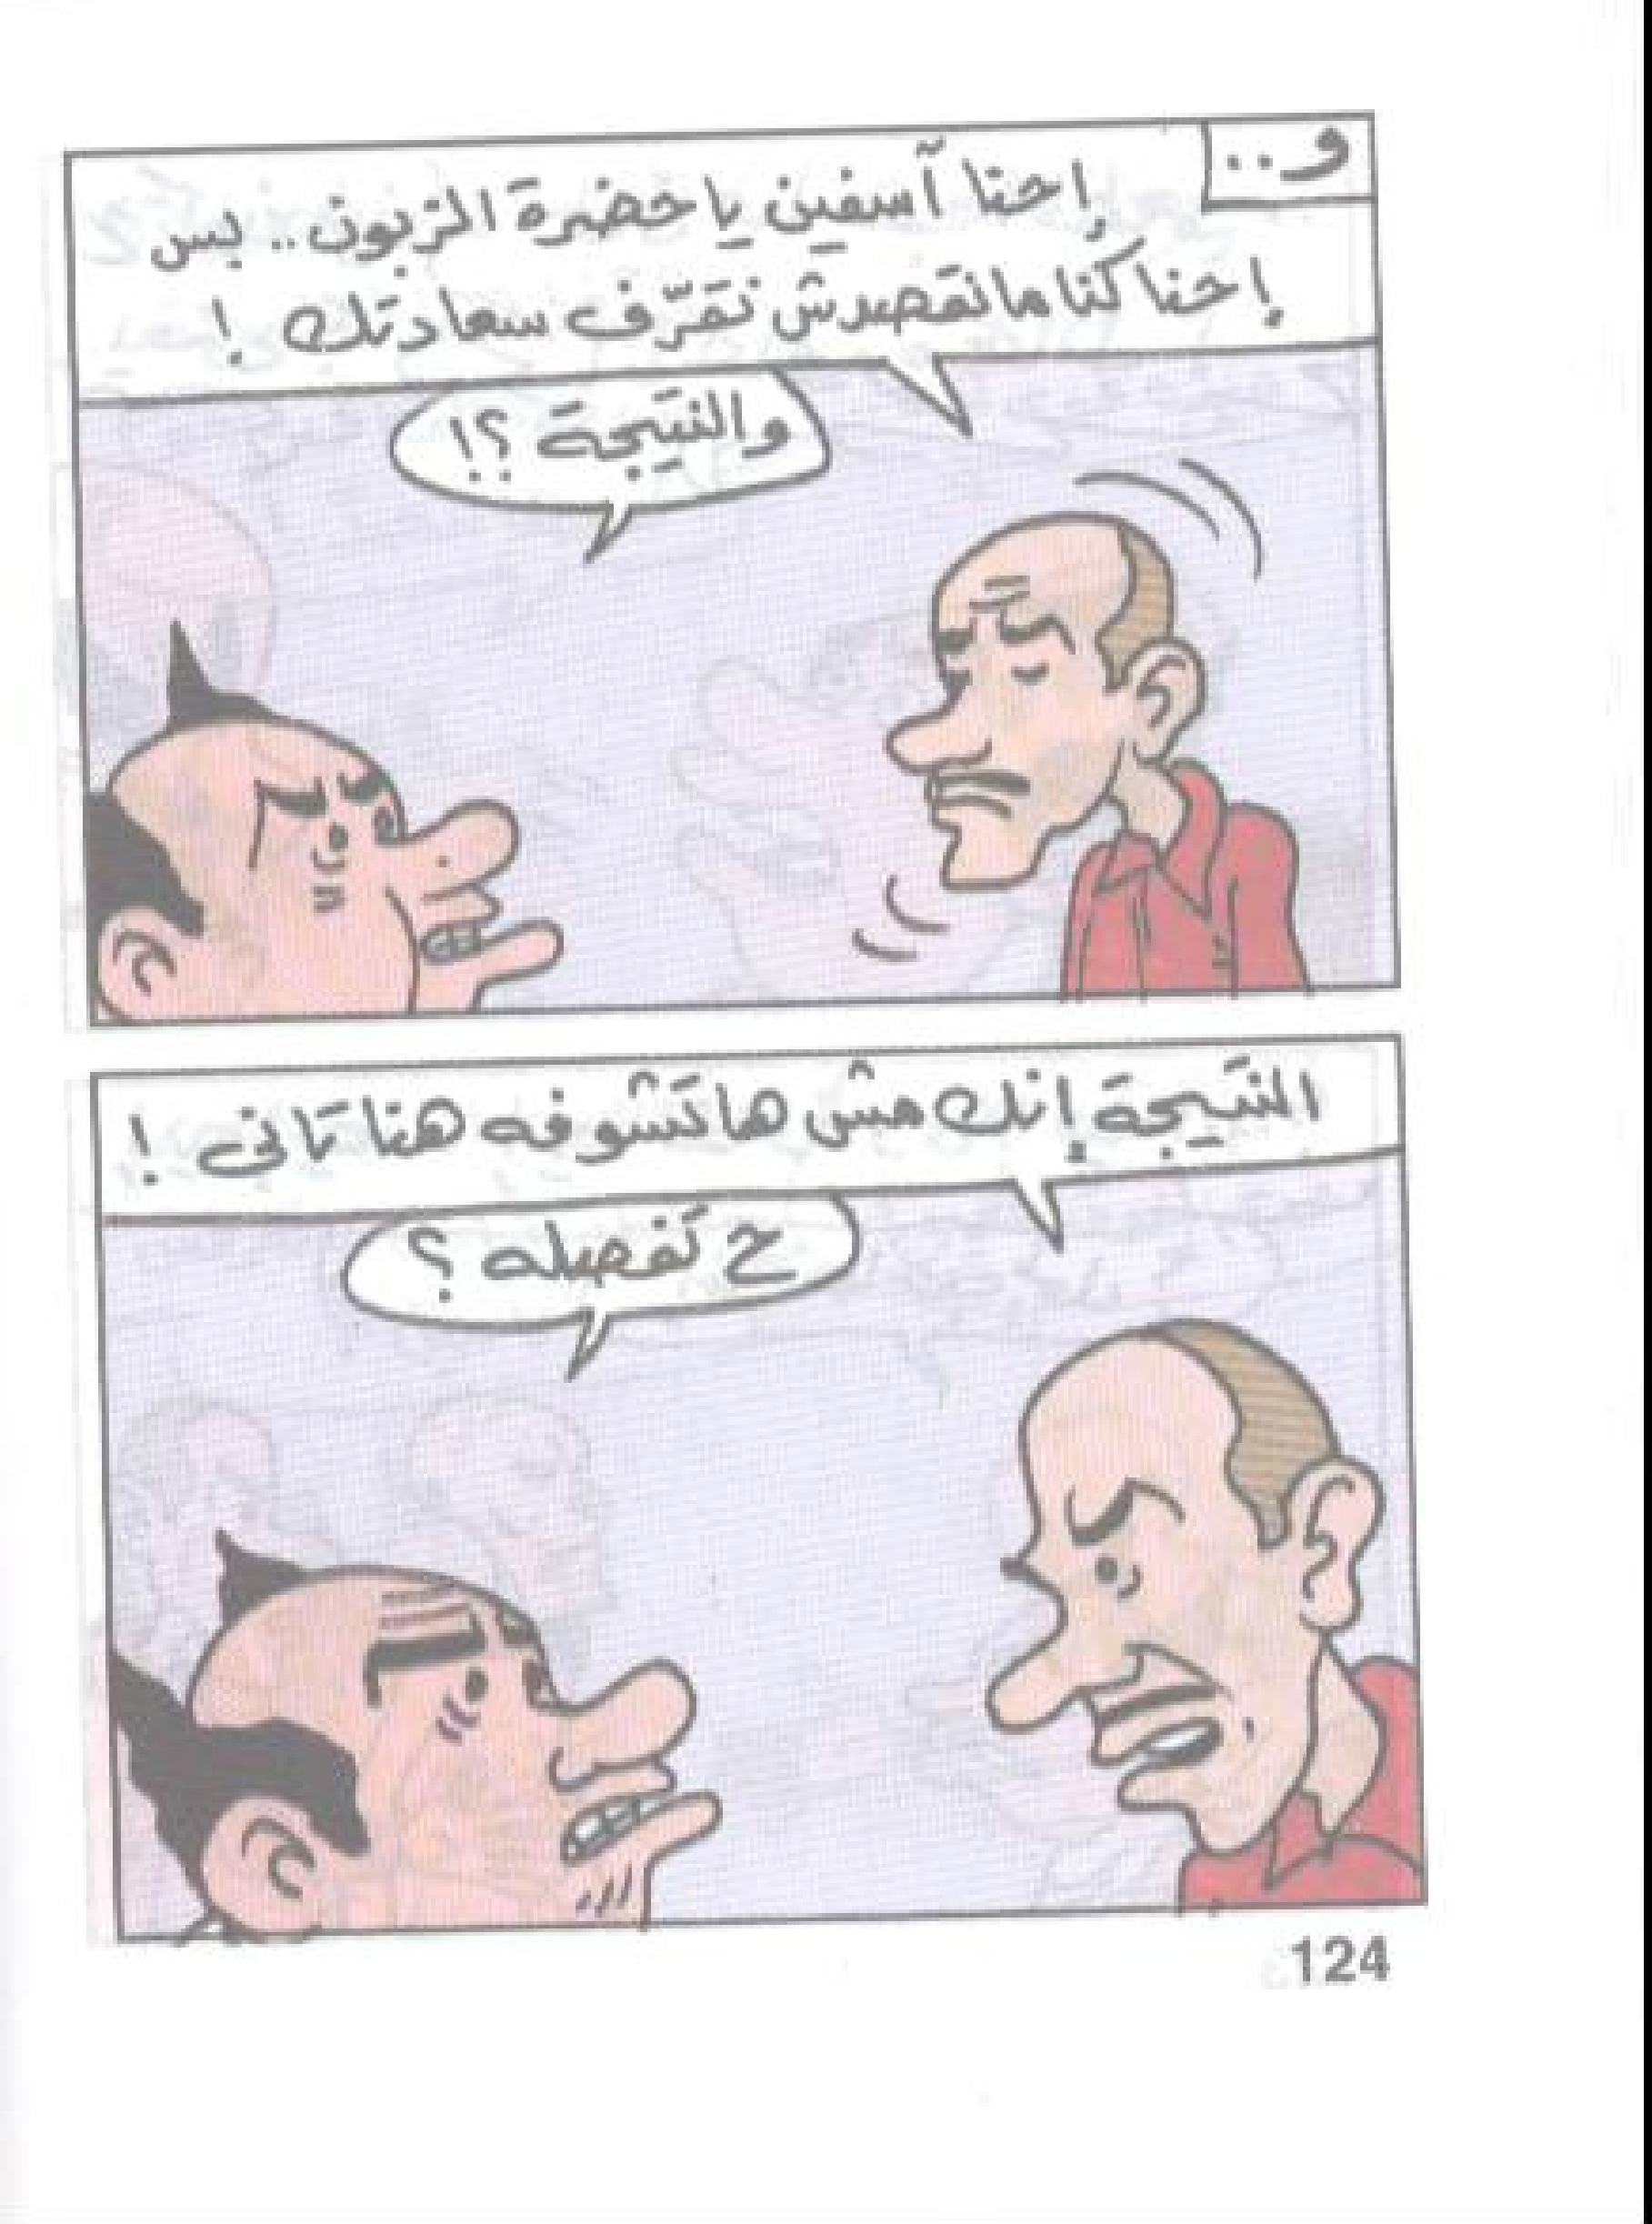 و..
إحنا آسفين يا حضرة الزبون.. بس
إحنا كنا مانقصدش نقرّف سعادتك !
والنتيجة ؟!
النتيجة إنك مش هاتشوفه هنا تانى !
ح تفصله ؟
124